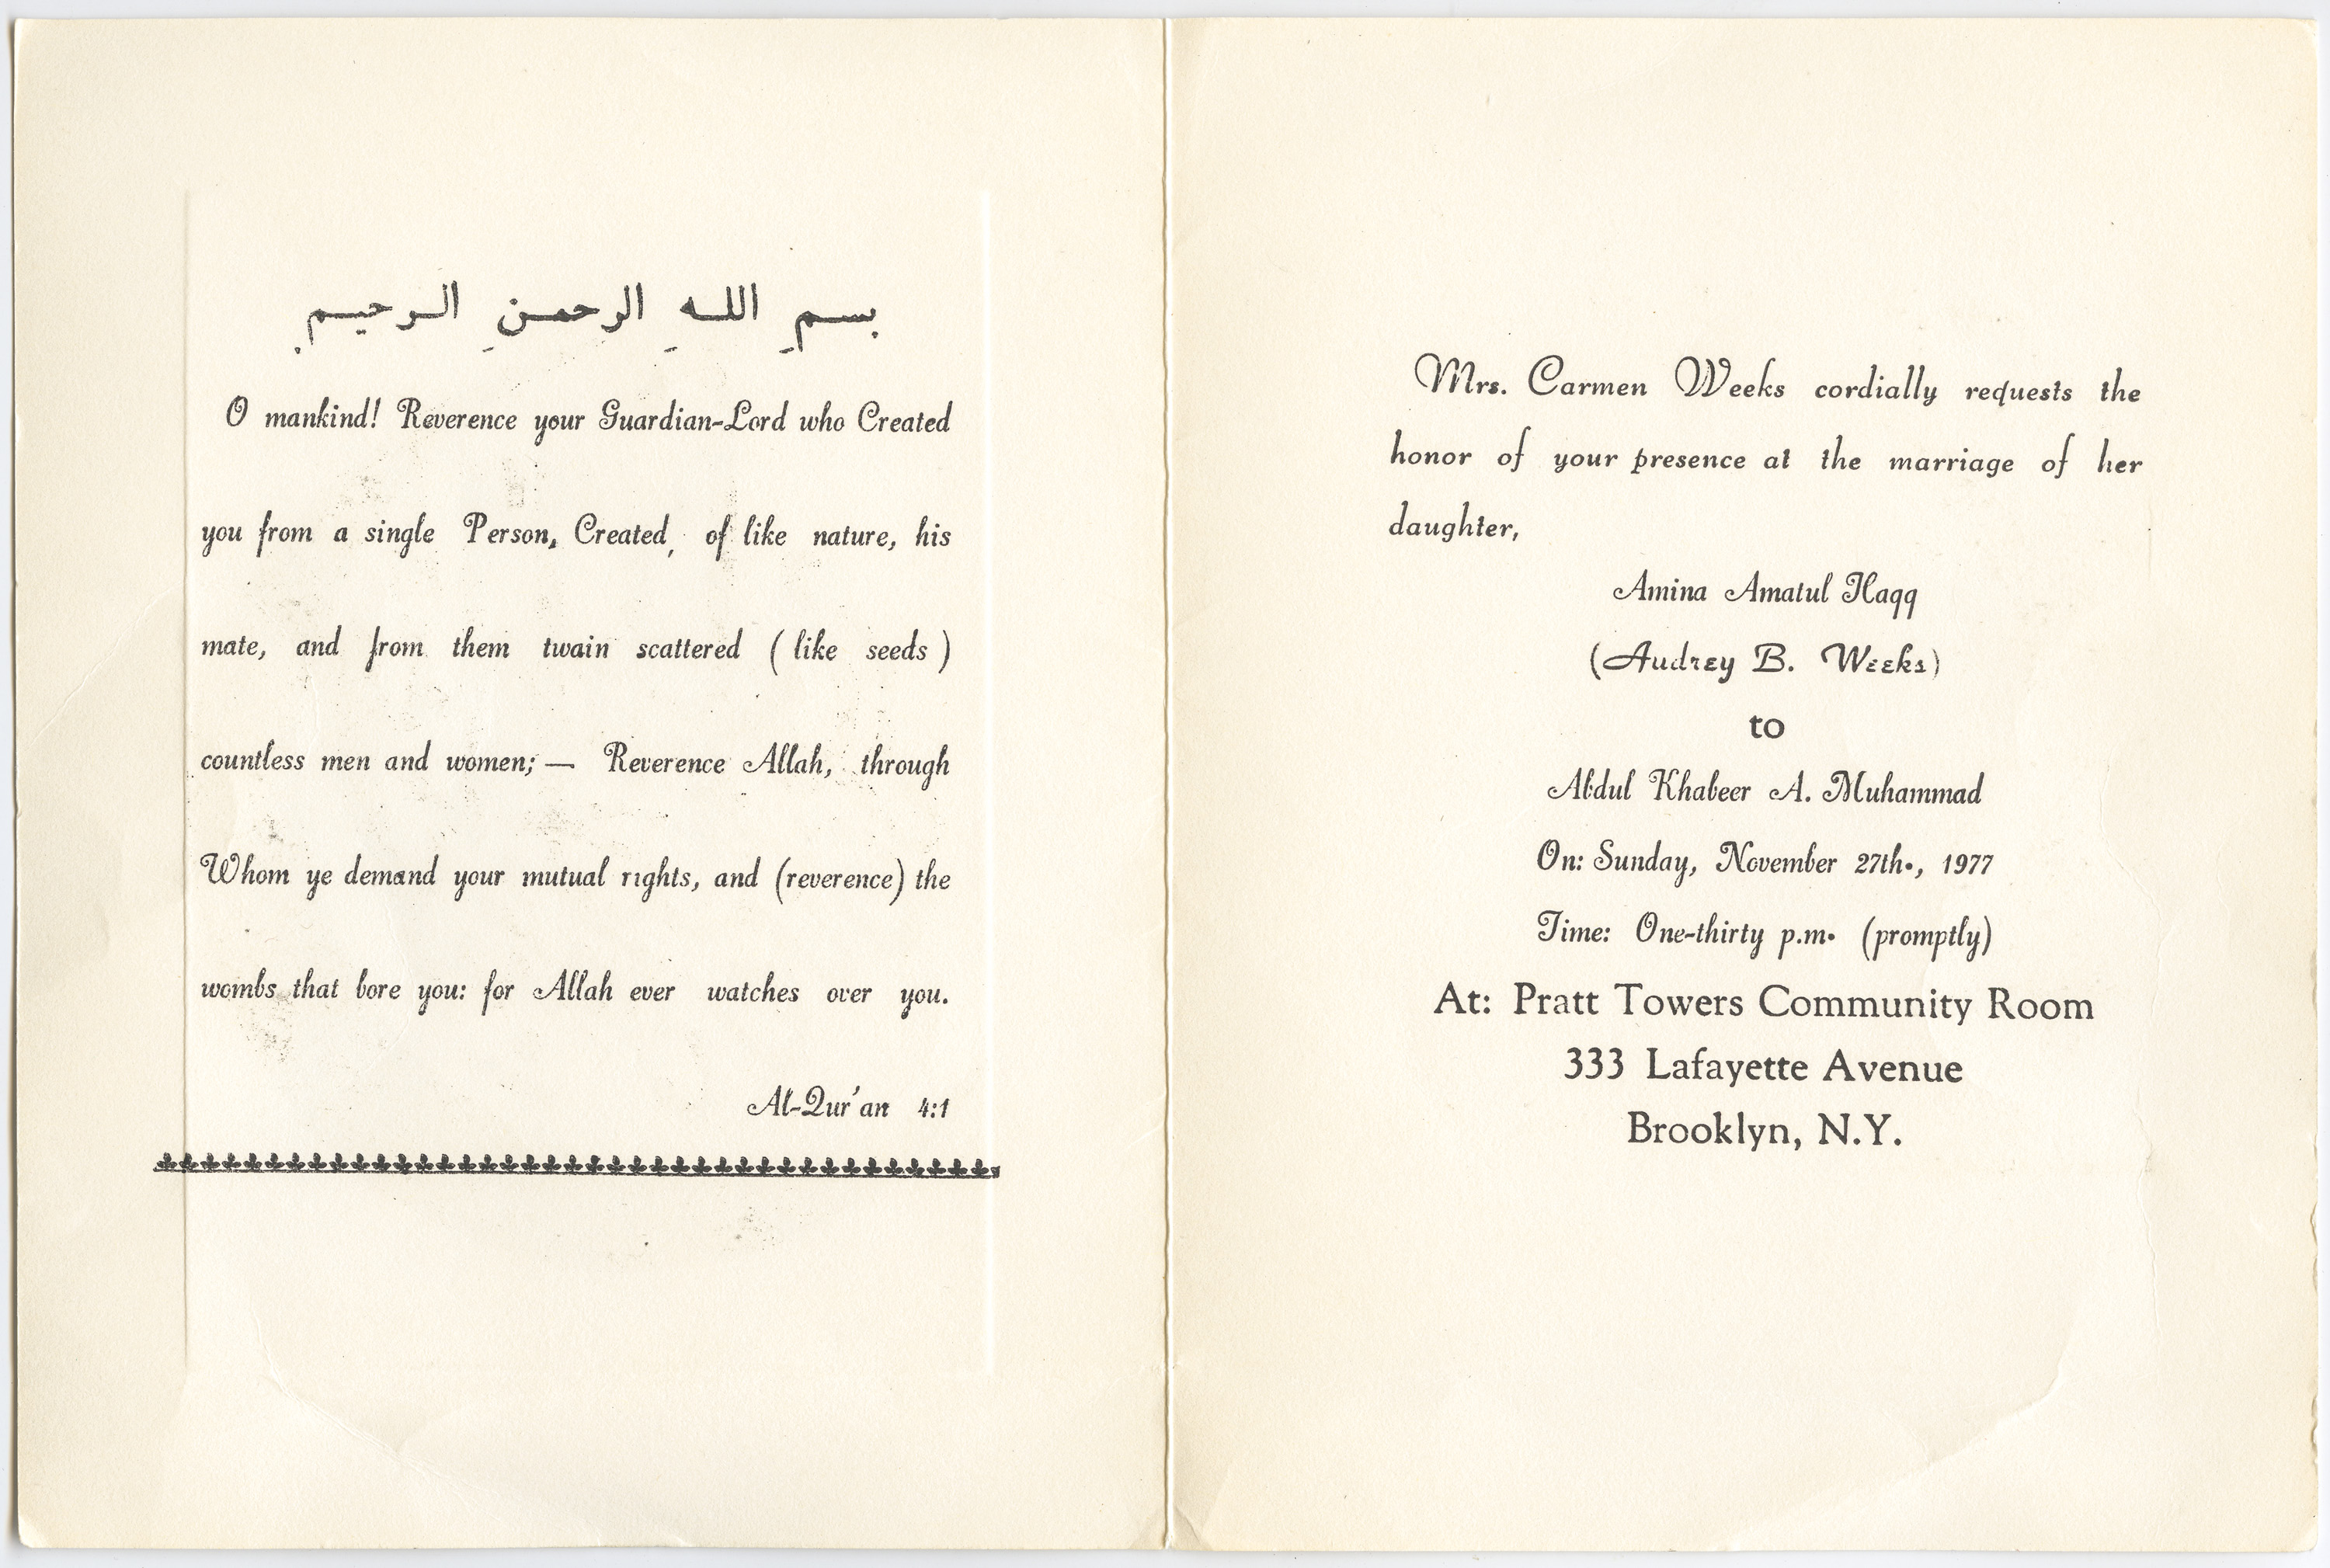 بسمِ اللهِ الرحمنِ الرحيمِ
O mankind! Reverence your Guardian-Lord who Created
you from a single Person, Created, of like nature, his
mate, and from them twain scattered ( like seeds )
countless men and women; — Reverence Allah, through
Whom ye demand your mutual rights, and (reverence) the
wombs that bore you: for Allah ever watches over you.
Al-Qur'an 4:1
Mrs. Carmen Weeks cordially requests the
honor of your presence at the marriage of her
daughter,
Amina Amatul Haqq
(Audrey B. Weeks)
to
Abdul Khabeer A. Muhammad
On: Sunday, November 27th., 1977
Time: One-thirty p.m. (promptly)
At: Pratt Towers Community Room
333 Lafayette Avenue
Brooklyn, N.Y.